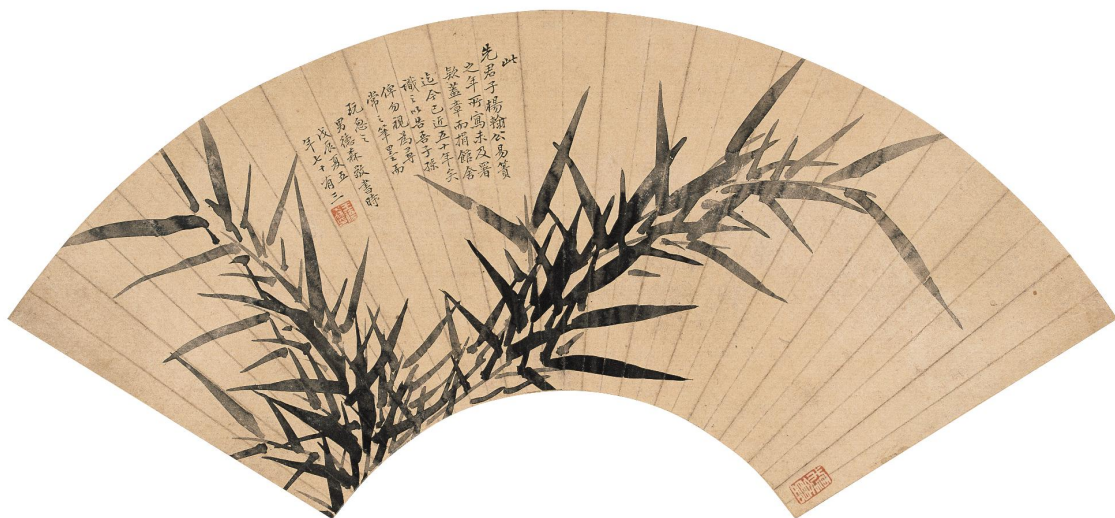 此
先君子楊翰公易簀
之年所寫未及署
欵蓋章而捐館舍
迄今已近五十年矣
識之以告吾子孫
俾勿視為尋
常之筆墨而
玩忽之
男德森敬書時
戊辰夏五
年七十有三